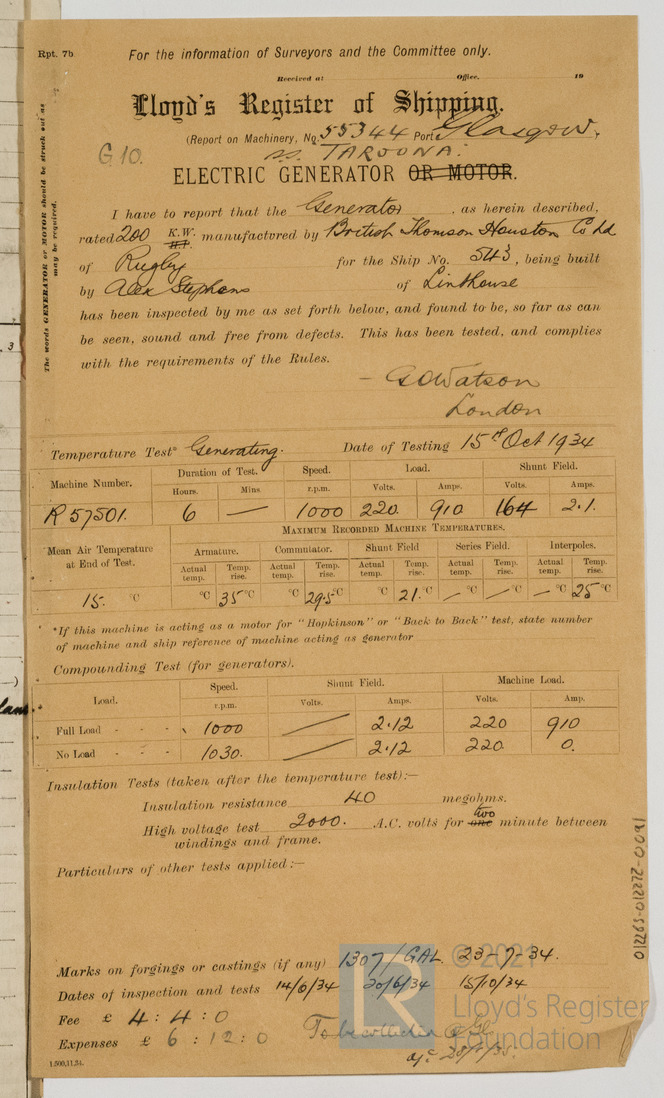 Rpt. 7b. For the information of Surveyors and the Committee only.
Received at Office. 19
Lloyd's Register of Shipping.
(Report on Machinery, No. 55344 Port Glasgow.
G 10. s.s. TAROONA.
ELECTRIC GENERATOR OR MOTOR.
The words GENERATOR or MOTOR should be struck out as
may be required.
I have to report that the Generator, as herein described,
rated 200 K.W. H.P. manufactured by British Thomson Houston Co Ltd
of Rugby for the Ship No. 543, being built
by Alex Stephens of Linthouse
has been inspected by me as set forth below, and found to be, so far as can
be seen, sound and free from defects. This has been tested, and complies
with the requirements of the Rules.
G O Watson
London
Temperature Test* Generating. Date of Testing 15th Oct 1934
Machine Number. Duration of Test. Speed. Load. Shunt Field.
Hours. Mins. r.p.m. Volts. Amps. Volts. Amps.
R 57501. 6 — 1000 220. 910 164 2.1.
Maximum Recorded Machine Temperatures.
Mean Air Temperature at End of Test. Armature. Commutator. Shunt Field Series Field. Interpoles.
Actual temp. Temp. rise. Actual temp. Temp. rise. Actual temp. Temp. rise. Actual temp. Temp. rise. Actual temp. Temp. rise.
15. °C °C 35 °C °C 29.5 °C °C 21. °C — °C — °C — °C 25 °C
*If this machine is acting as a motor for "Hopkinson" or "Back to Back" test, state number
of machine and ship reference of machine acting as generator
Compounding Test (for generators).
Load. Speed. Shunt Field. Machine Load.
r.p.m. Volts. Amps. Volts. Amp.
Full Load - - - 1000 — 2.12 220 910
No Load - - - 1030. — 2.12 220. 0.
Insulation Tests (taken after the temperature test):—
Insulation resistance 40 megohms.
two
High voltage test 2000. A.C. volts for one minute between
windings and frame.
Particulars of other tests applied:—
Marks on forgings or castings (if any) 1307/GAL. 23-7-34.
Dates of inspection and tests 14/6/34 20/6/34 15/10/34
Fee £ 4 : 4 : 0
Expenses £ 6 : 12 : 0 To be collected @
1,500,11.34.
012265-012272-0091
© 2021
Lloyd's Register
Foundation
LR
3